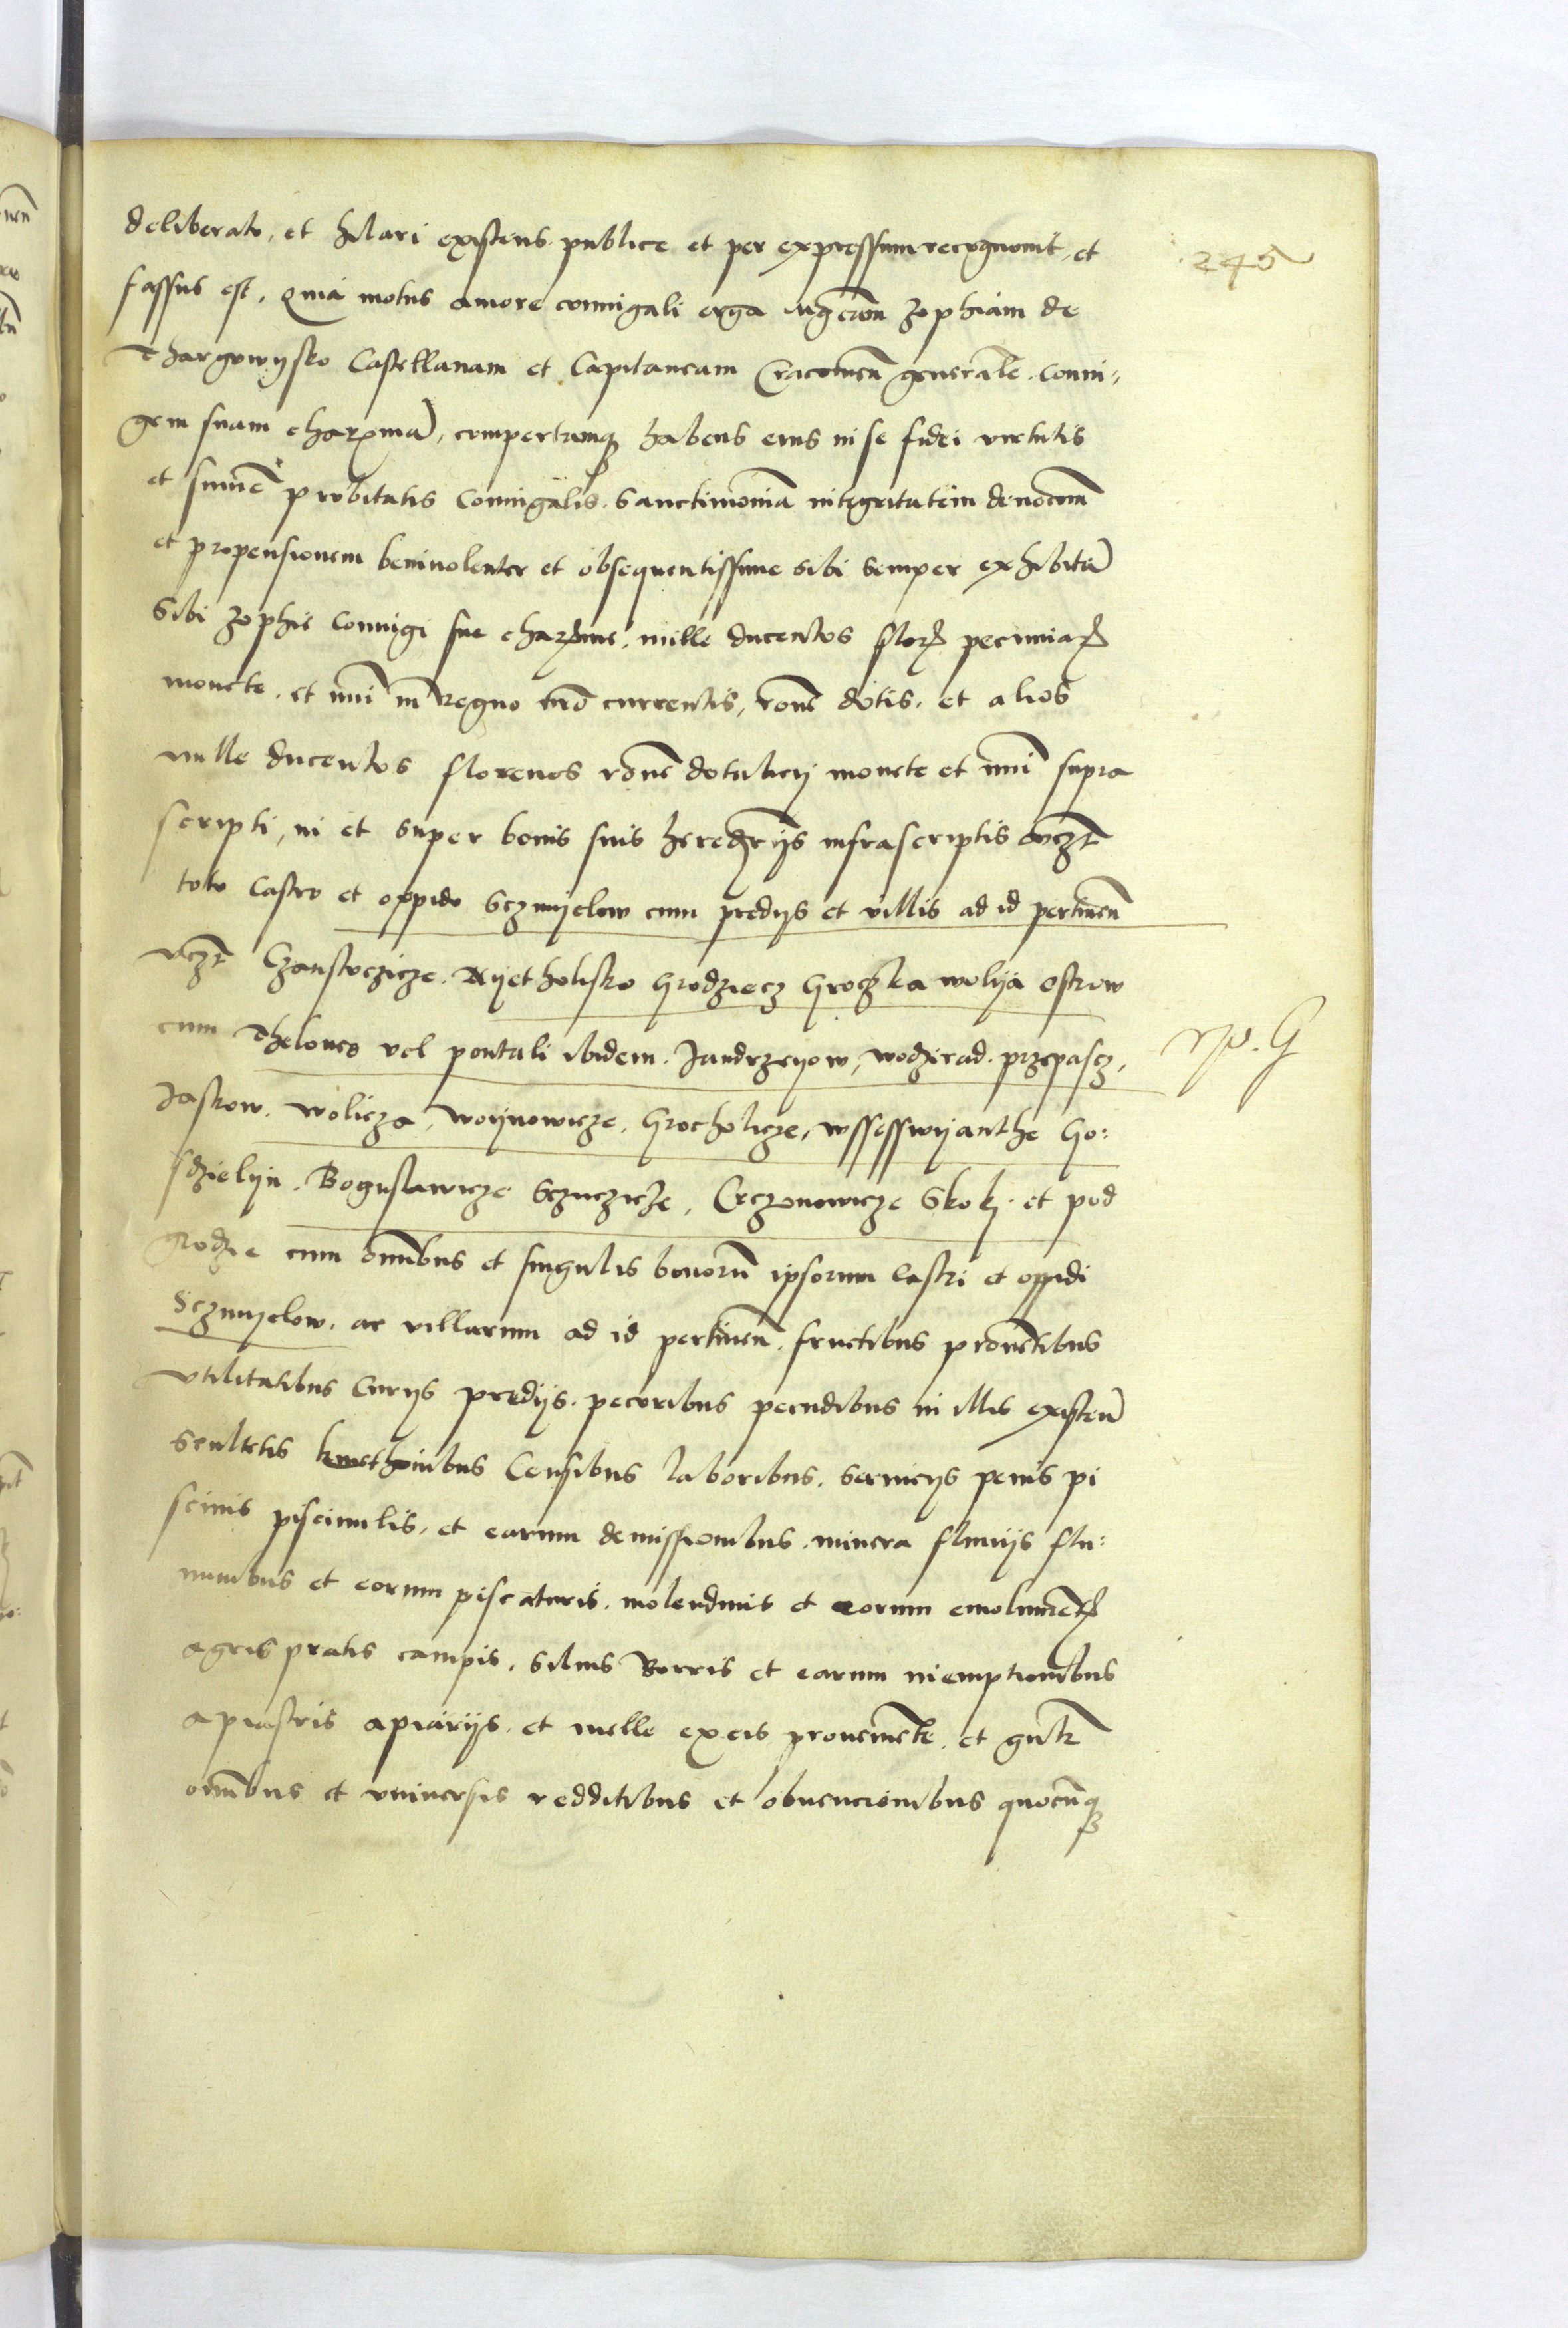 deliberato, et hilari existens publice et per expressum recognouit, et
245
fassus est. Quia motus amore coniugali erga Zophiam de
Thargowysko Castellanam et Capitaneam Cracouien̄ generale͞. coniu-
gem suam chariss͞ma͞, compertamq3 habens eius in se fidei virtutis
et summe͞ probitatis coniugalis. Sanctimonia͞ integritatem deuoc͞om͞
et propensionem beniuolenter et obsequentissime sibi semper exhibita͞
Sibi Zophie coniugi sue charissime. mille ducentos floren pecuniar
monete. et nu͞i in Regno currentis, ro͞ne dotis. et alios
mille ducentos florenos ro͞ne dotalicij monete et nu͞i supra
scripti, in et super bonis suis heredr͞ijs infrascriptis vcz͞t
toto Castro et oppido Sczmyelow cum predijs et villis ad id pertinen͞
vcz͞t Czanstoczicze. Nyetholisko Grodziecz Groczka wolya Ostrow
cum Theloneo vel pontali ibidem. Jandrzeyow, wodzirad. przepascz,
Jastow. Wolicza, woynowicze, Grocholicze, wssesswyanthe Go:
Np. G
sdzielyn. Boguslawicze Sczuczicze, Crczonowicze Skoky. et pod
grodzie cum om͞ibus et singulis bonoru͞ ipsorum castri et oppidi
Sczmyelow. ac villarum ad id pertinen͞. fructibus prouentibus
vtilitatibus Curijs predijs. pecoribus pecudibus in illis existen͞
Scultetis kmethonibus Censibus laboribus. seruicijs penis pi
scinis pisciculis, et earum demissionibus. minera fluuijs flu:
minibus et eorum piscaturis. molendinis et eorum emolume͞t
agris pratis campis, siluis Borris et earum in emptionibus
apiastris apiarijs. et melle ex eis proueniente. et gn͞lr
om͞ibus et vniuersis redditibus et obuencionibus quocu͞q3